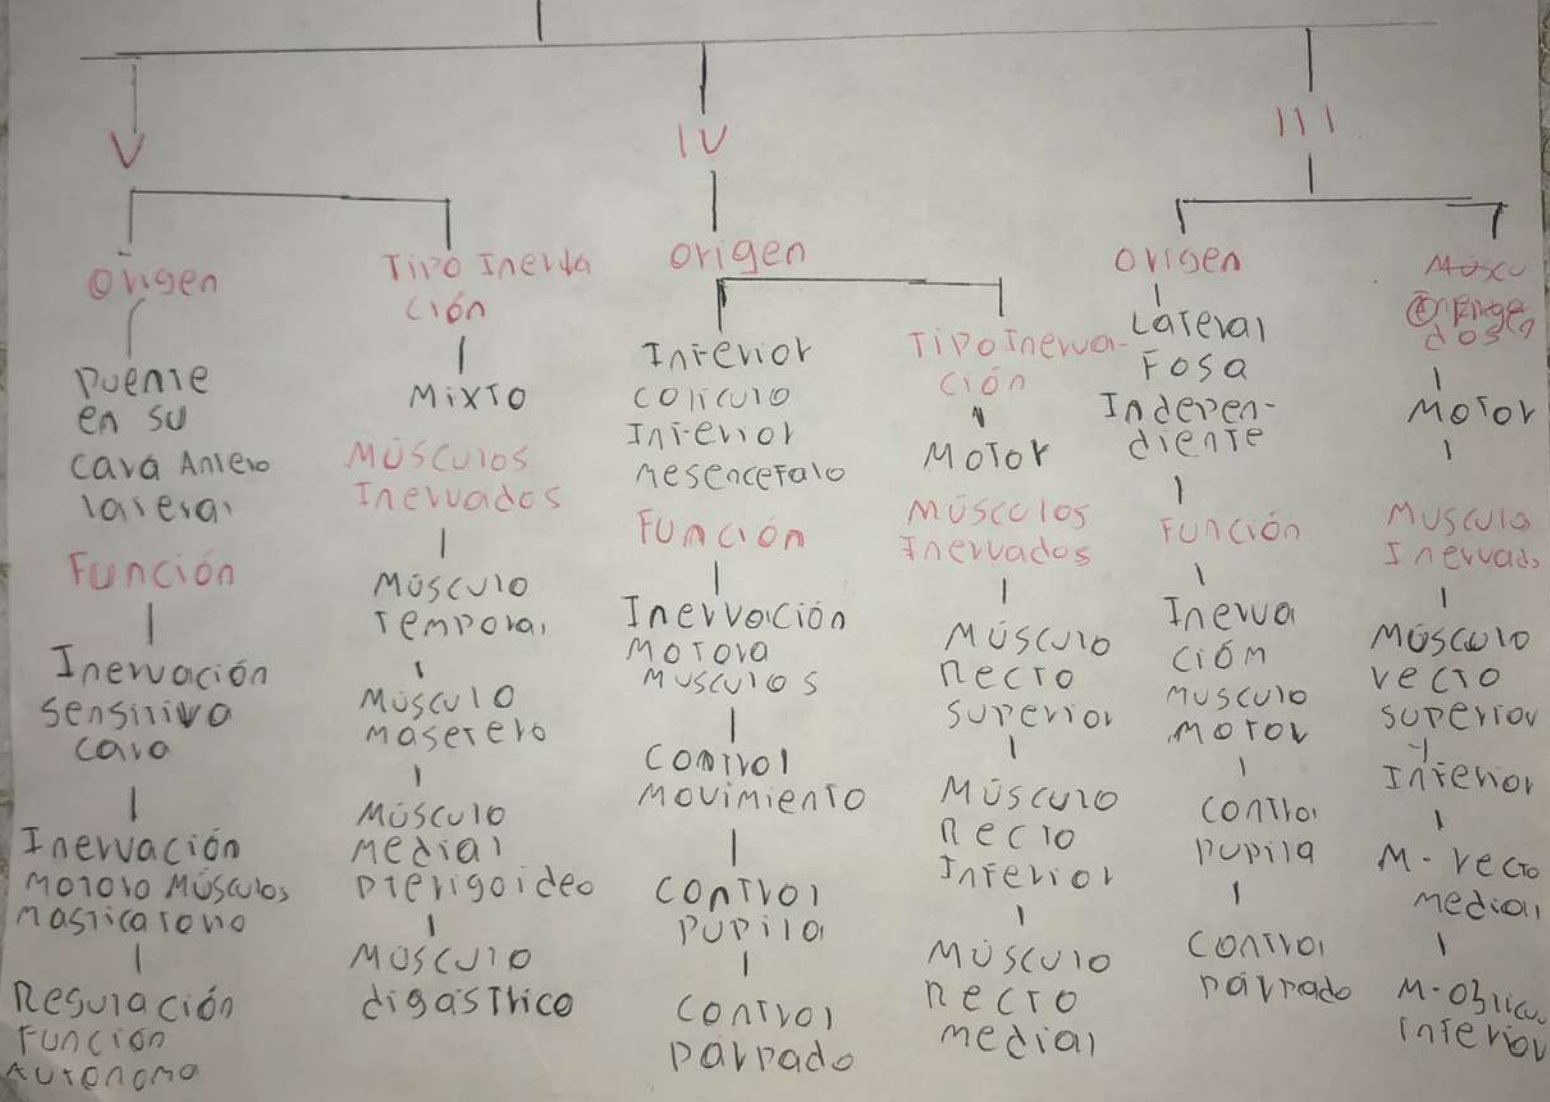 V
Origen
Puente
en su
cara Antero
lateral
Función
Inervación
sensitiva
cara
Inervación
motora Músculos
masticatorio
Regulación
Función
Autonoma
Tipo Inerva
ción
Mixto
Músculos
Inervados
Músculo
Temporal
Músculo
masetero
Músculo
medial
Pterigoideo
Músculo
digástrico
IV
Origen
Inferior
coliculo
Inferior
mesencefalo
Función
Inervación
Motora
musculos
Control
Movimiento
Control
Pupila
Control
Párpado
Tipo Inerva-
ción
Motor
Músculos
Inervados
Músculo
Recto
Superior
Músculo
Recto
Inferior
Músculo
Recto
medial
III
Origen
Lateral
Fosa
Indepen-
diente
Función
Inerva
ción
musculo
motor
Control
Pupila
Control
Párpado
Múscu
dos
Motor
Musculo
Inervado
Músculo
recto
superior
Inferior
M- recto
medial
M- Oblicuo
inferior